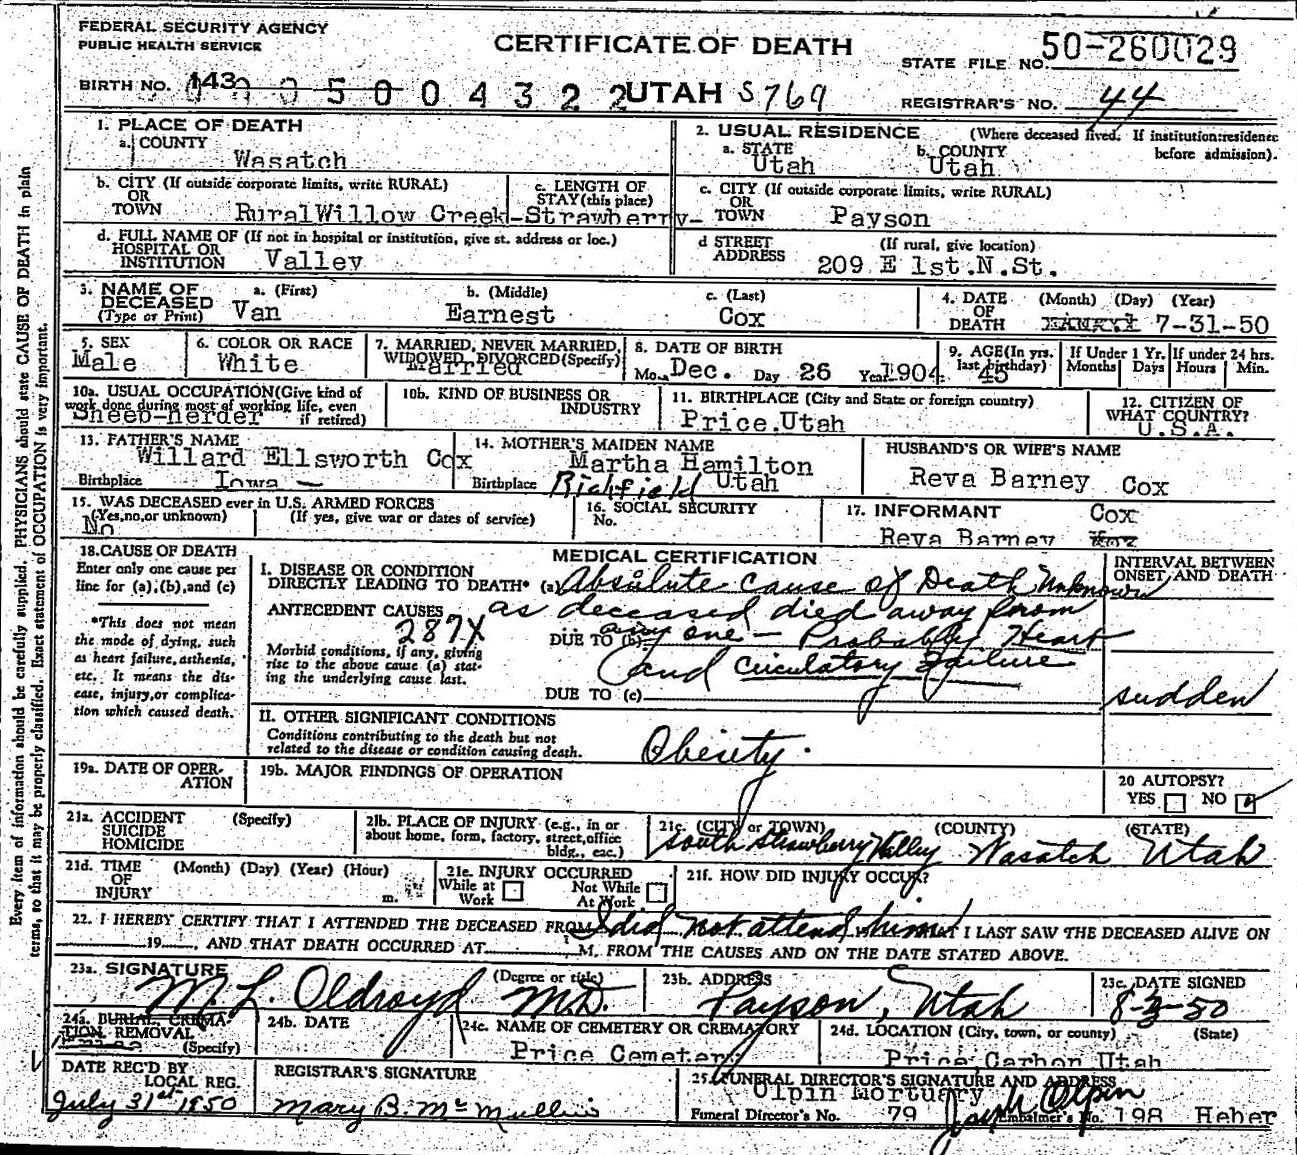 FEDERAL SECURITY AGENCY
PUBLIC HEALTH SERVICE
CERTIFICATE OF DEATH
STATE FILE NO. 50-260029
BIRTH NO. 143 0500432 2 UTAH S769
REGISTRAR'S NO. 44
1. PLACE OF DEATH
a. COUNTY
Wasatch
2. USUAL RESIDENCE (Where deceased lived. If institution:residence before admission).
a. STATE
Utah
b. COUNTY
Utah
b. CITY (If outside corporate limits, write RURAL)
OR
TOWN RuralWillow Creek-Strawberry-
c. LENGTH OF
STAY(this place)
c. CITY (If outside corporate limits, write RURAL)
OR
TOWN Payson
d. FULL NAME OF (If not in hospital or institution, give st. address or loc.)
HOSPITAL OR
INSTITUTION Valley
d STREET (If rural, give location)
ADDRESS 209 E 1st.N.St.
3. NAME OF DECEASED
(Type or Print)
a. (First)
Van
b. (Middle)
Earnest
c. (Last)
Cox
4. DATE OF DEATH (Month) (Day) (Year)
7-31-50
5. SEX
Male
6. COLOR OR RACE
White
7. MARRIED, NEVER MARRIED,
WIDOWED, DIVORCED(Specify)
Married
8. DATE OF BIRTH
Mo. Dec. Day 26 Year 1904
9. AGE(In yrs. last birthday)
45
If Under 1 Yr.
Months Days
If under 24 hrs.
Hours Min.
10a. USUAL OCCUPATION(Give kind of work done during most of working life, even if retired)
Sheep-herder
10b. KIND OF BUSINESS OR
INDUSTRY
11. BIRTHPLACE (City and State or foreign country)
Price.Utah
12. CITIZEN OF
WHAT COUNTRY?
U.S.A.
13. FATHER'S NAME
Willard Ellsworth Cox
Birthplace Iowa
14. MOTHER'S MAIDEN NAME
Martha Hamilton
Birthplace Richfield Utah
HUSBAND'S OR WIFE'S NAME
Reva Barney Cox
15. WAS DECEASED ever in U.S. ARMED FORCES
(Yes,no,or unknown) (If yes, give war or dates of service)
No
16. SOCIAL SECURITY
No.
17. INFORMANT Cox
Reva Barney
18. CAUSE OF DEATH
Enter only one cause per
line for (a),(b),and (c)
*This does not mean
the mode of dying, such
as heart failure, asthenia,
etc. It means the dis-
ease, injury, or complica-
tion which caused death.
MEDICAL CERTIFICATION
I. DISEASE OR CONDITION
DIRECTLY LEADING TO DEATH* (a) Absolute cause of Death Unknown
ANTECEDENT CAUSES as deceased died away from
287X
DUE TO (b) any one - Probably Heart
Morbid conditions, if any, giving
rise to the above cause (a) stat-
ing the underlying cause last.
and circulatory Failure
DUE TO (c)
INTERVAL BETWEEN
ONSET AND DEATH
sudden
II. OTHER SIGNIFICANT CONDITIONS
Conditions contributing to the death but not
related to the disease or condition causing death.
Obesity.
19a. DATE OF OPER-
ATION
19b. MAJOR FINDINGS OF OPERATION
20 AUTOPSY?
YES NO
21a. ACCIDENT (Specify)
SUICIDE
HOMICIDE
21b. PLACE OF INJURY (e.g., in or
about home, form, factory, street,office
bldg., eac.)
21c. (CITY or TOWN) (COUNTY) (STATE)
South Strawberry Valley Wasatch Utah
21d. TIME (Month) (Day) (Year) (Hour)
OF
INJURY m.
21e. INJURY OCCURRED
While at Work Not While At Work
21f. HOW DID INJURY OCCUR?
22. I HEREBY CERTIFY THAT I ATTENDED THE DECEASED FROM I did not attend him THAT I LAST SAW THE DECEASED ALIVE ON
19, AND THAT DEATH OCCURRED AT M. FROM THE CAUSES AND ON THE DATE STATED ABOVE.
23a. SIGNATURE (Degree or title)
M. L. Oldroyd M.D.
23b. ADDRESS
Payson, Utah
23c. DATE SIGNED
8-3-50
24a. BURIAL, CREMA-
TION, REMOVAL
(Specify)
24b. DATE
24c. NAME OF CEMETERY OR CREMATORY
Price Cemetery
24d. LOCATION (City, town, or county) (State)
Price, Carbon Utah
DATE REC'D BY
LOCAL REG.
July 31st 1950
REGISTRAR'S SIGNATURE
Mary B. McMullin
25. FUNERAL DIRECTOR'S SIGNATURE AND ADDRESS
Olpin Mortuary Joseph Olpin
Funeral Director's No. 79 Embalmer's No. 198 Heber
Every item of information should be carefully supplied. PHYSICIANS should state CAUSE OF DEATH in plain
terms, so that it may be properly classified. Exact statement of OCCUPATION is very important.